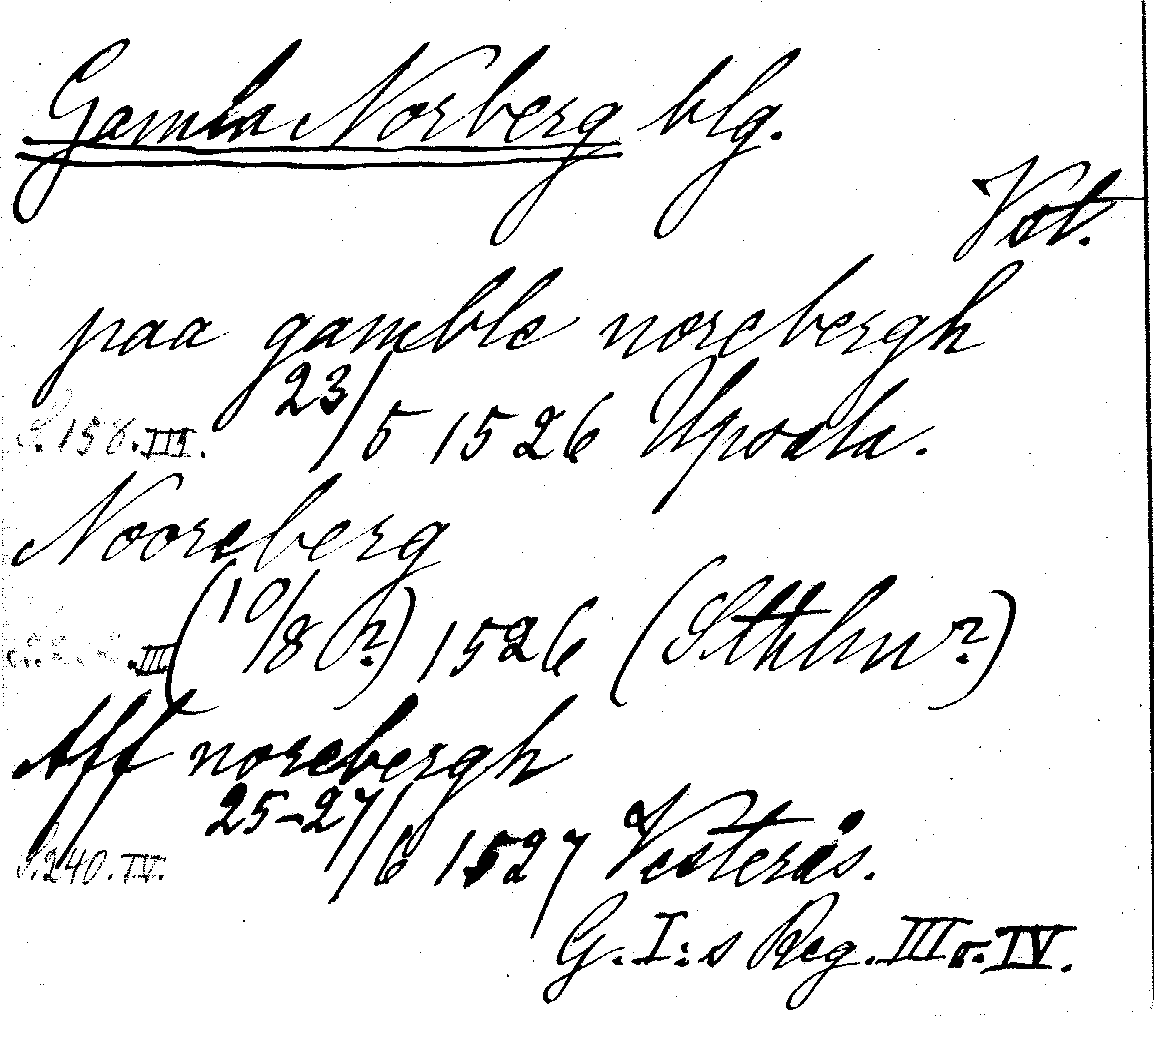 Gamla Norberg blg.
Vst.
paa gamble norebergh
S. 158. III. 23/5 1526 Upsala.
Nooreberg
III (10/8 (?) 1526 (Sthlm?)
Aff norebergh
S. 240. IV. 25-27/6 1527 Vesterås.
G. I:s Reg. III o. IV.